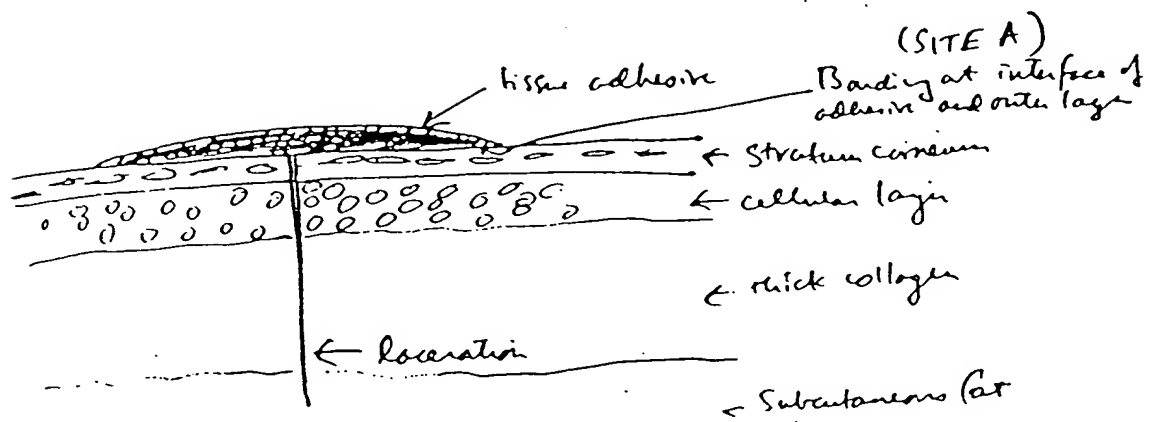 (SITE A)
tissue adhesive
Bonding at interface of
adhesive and outer layer
stratum corneum
cellular layer
thick collagen
laceration
Subcutaneous fat